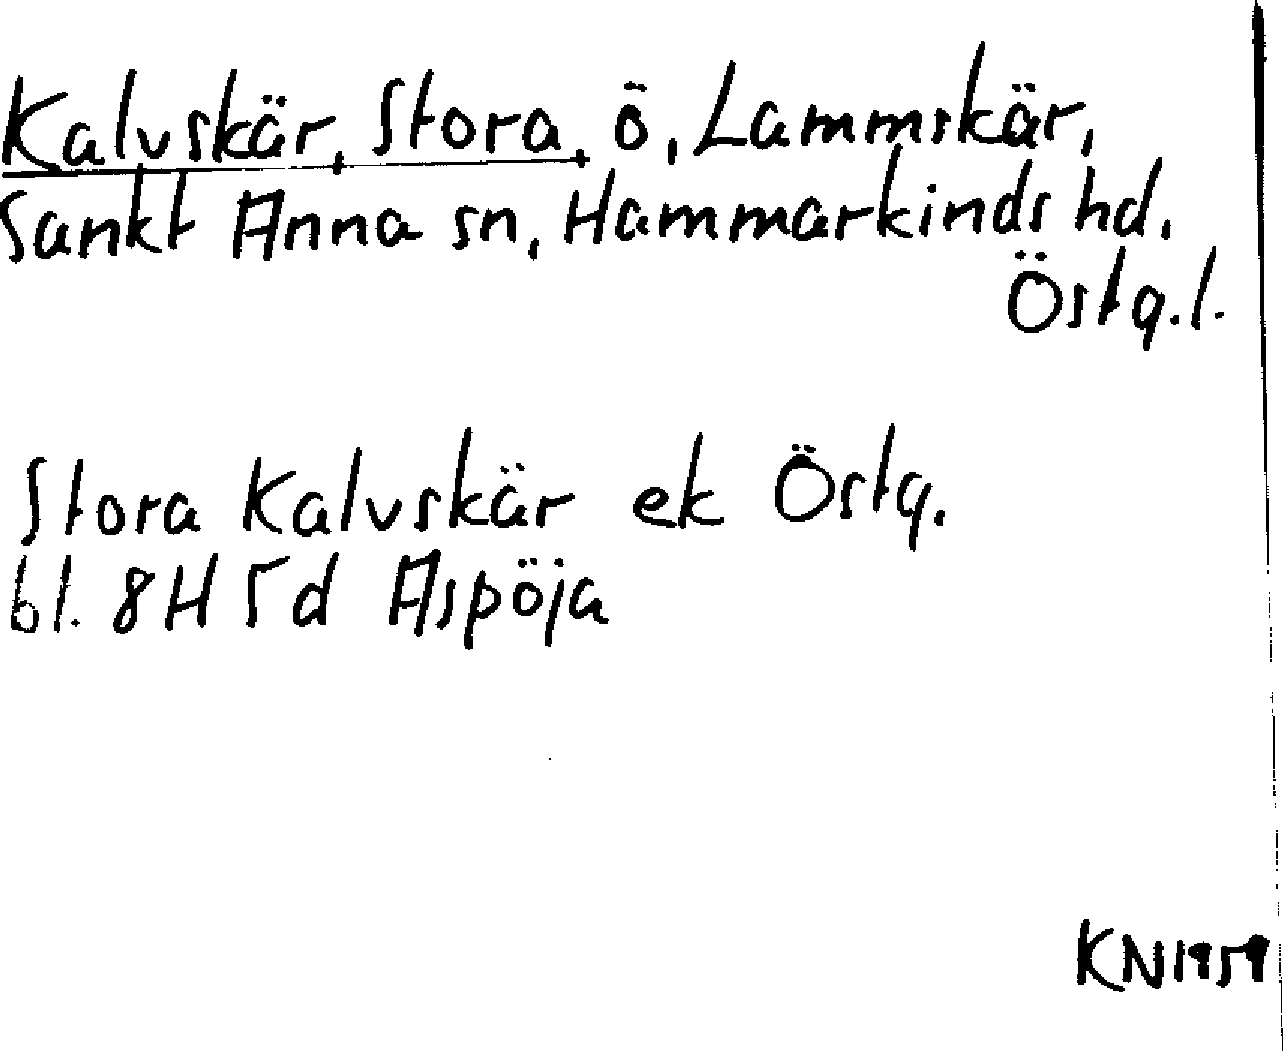 Kalvskär, Stora, ö, Lammskär,
Sankt Anna sn, Hammarkinds hd,
Östg.l.
Stora Kalvskär ek Östg.
bl. 8H 5d Aspöja
KN1959